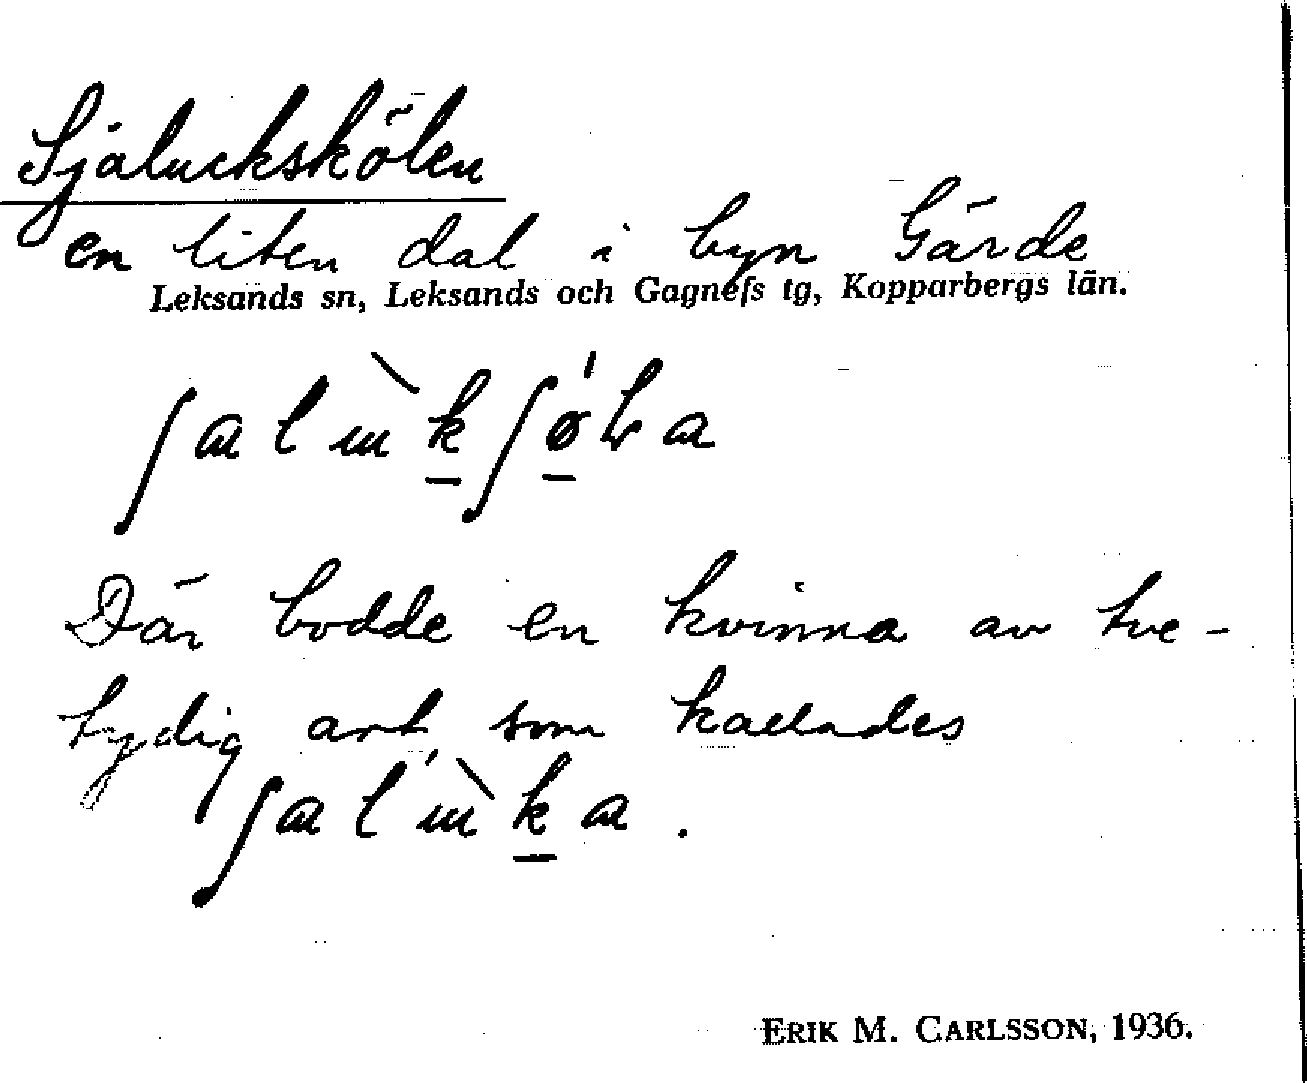 Själuckskölen
en liten dal i byn Gärde
Leksands sn, Leksands och Gagnefs tg, Kopparbergs län.
Där bodde en kvinna av tve-
tydig art, som kallades
ERIK M. CARLSSON, 1936.